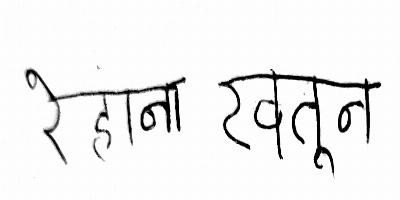 रेहाना खतून